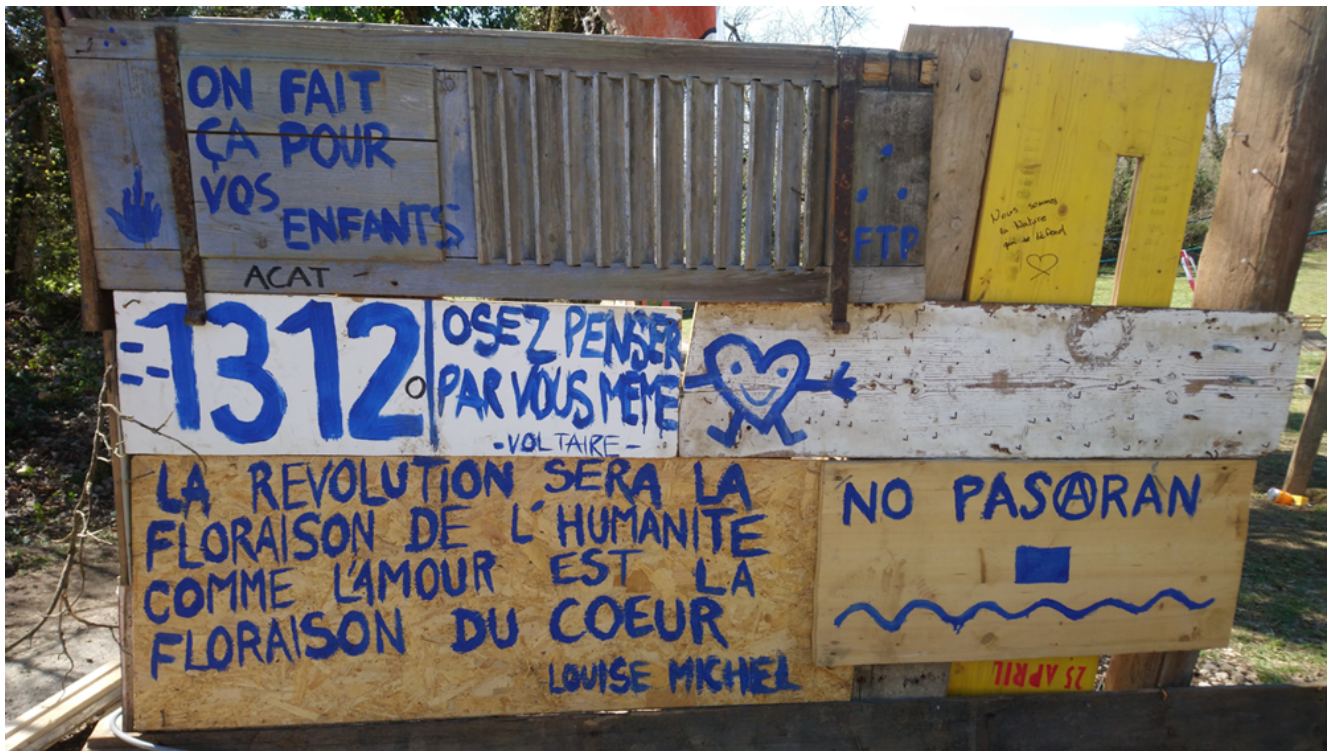 ON FAIT
ÇA POUR
VOS
ENFANTS
ACAT
FTP
Nous sommes
la Nature
qui se défend
1312
OSEZ PENSER
PAR VOUS MEME
-VOLTAIRE-
LA REVOLUTION SERA LA
FLORAISON DE L'HUMANITE
COMME L'AMOUR EST LA
FLORAISON DU COEUR
LOUISE MICHEL
NO PASARAN
25 APRIL